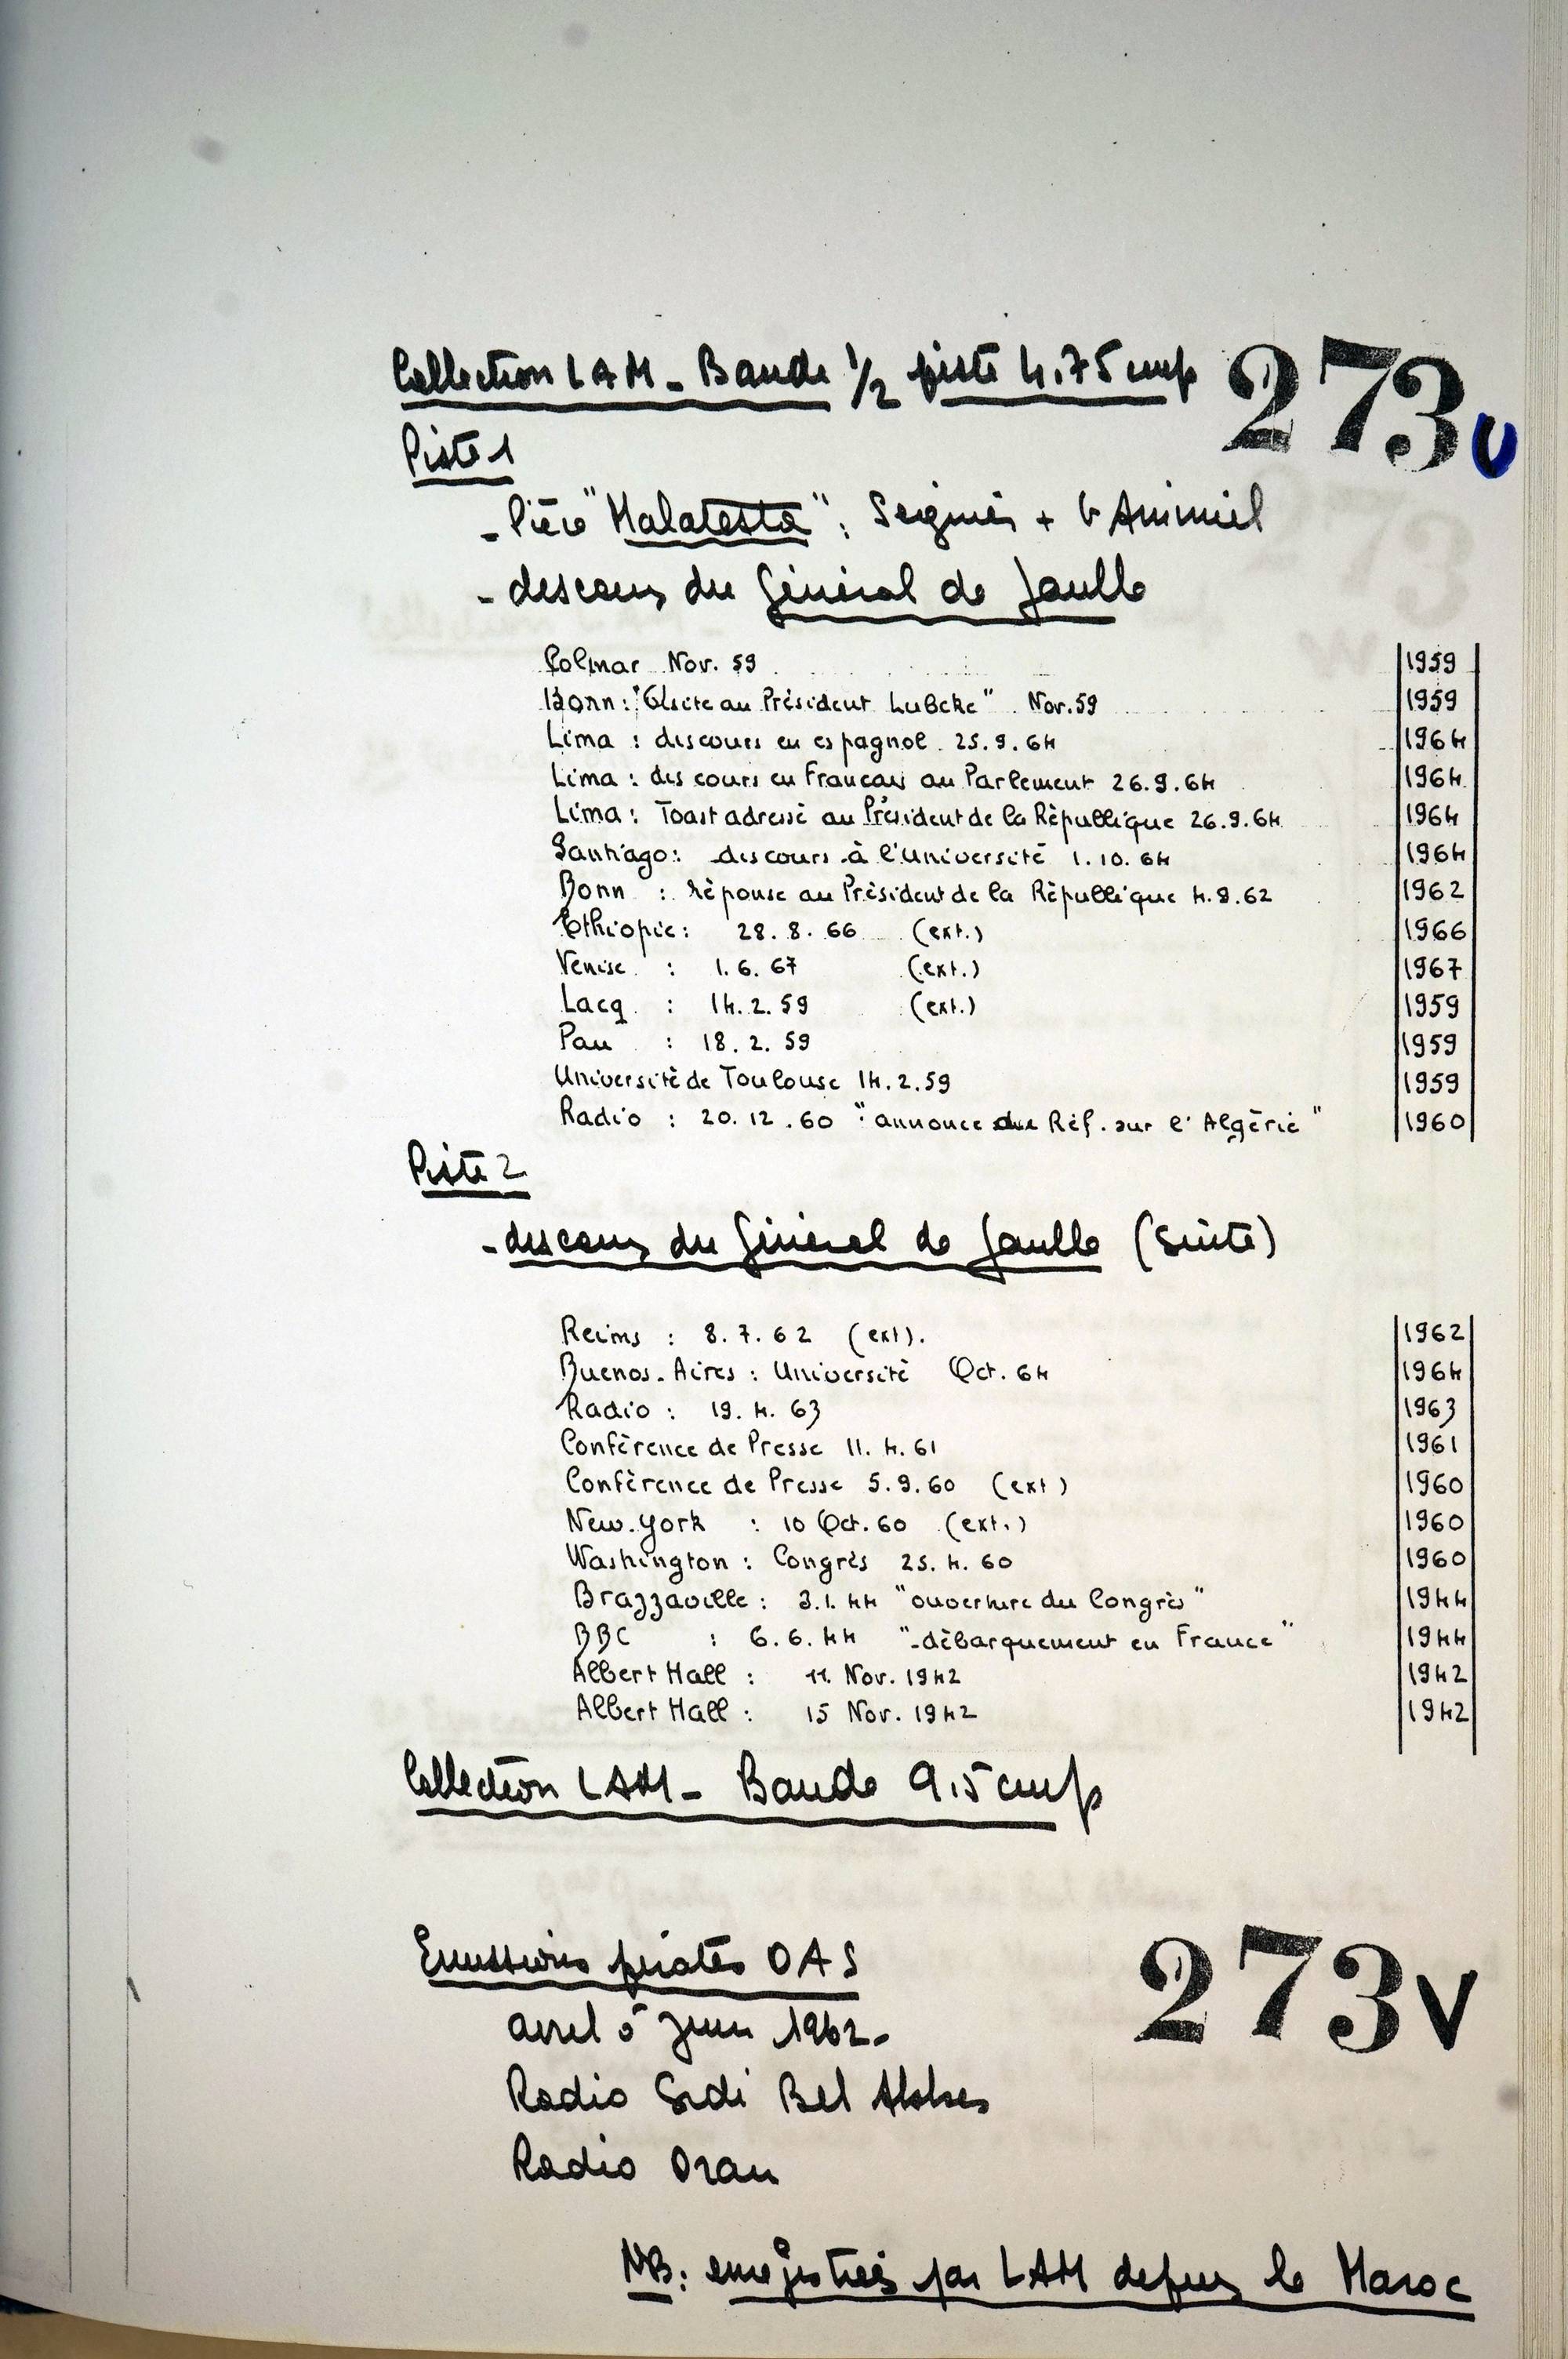 Collection LAM - Bande 1/2 piste 4.75 cmp 273 U
Piste 1
- Pièce "Malatesta" :
- discours du Général de Gaulle
Colmar Nov. 59 1959
Bonn : "Visite au Président Lubcke" Nov. 59 1959
Lima : discours en espagnol 25.9.64 1964
Lima : discours en Francais au Parlement 26.9.64 1964
Lima : Toast adressé au Président de la République 26.9.64 1964
Santiago : discours à l'Université 1.10.64 1964
Bonn : réponse au Président de la République 4.9.62 1962
Ethiopie : 28.8.66 (ext.) 1966
Venise : 1.6.67 (ext.) 1967
Lacq : 14.2.59 (ext.) 1959
Pau : 18.2.59 1959
Université de Toulouse 14.2.59 1959
Radio : 20.12.60 "annonce du Réf. sur l'Algérie" 1960
Piste 2
- discours du Général de Gaulle (suite)
Reims : 8.7.62 (ext). 1962
Buenos-Aires : Université Oct. 64 1964
Radio : 19.4.63 1963
Conférence de Presse 11.4.61 1961
Conférence de Presse 5.9.60 (ext) 1960
New-York : 10 Oct. 60 (ext.) 1960
Washington : Congrès 25.4.60 1960
Brazzaville : 3.1.44 "ouverture du Congrès" 1944
BBC : 6.6.44 "débarquement en France" 1944
Albert Hall : 11 Nov. 1942 1942
Albert Hall : 15 Nov. 1942 1942
Collection LAM - Bande 9.5 cmp
Emissions pirates OAS 273 V
avril à Juin 1962-
Radio Sidi Bel Abbes
Radio Oran
NB : enregistrés par LAM depuis le Maroc